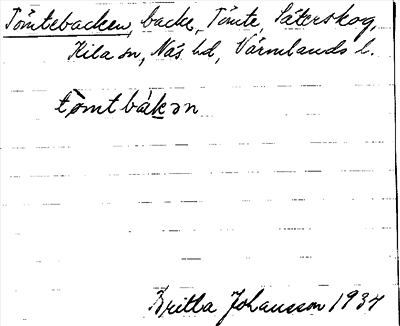 Tömtebacken, backe, Tömte, Säterskog,
Kila sn, Näs hd, Värmlands l.
tömtbákən
Britta Johansson 1934